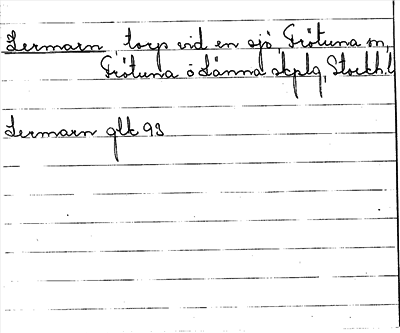 Lermarn torp vid en sjö, Frötuna sn,
Frötuna o Länna skplg, Stockh. l
Lermarn glk 93